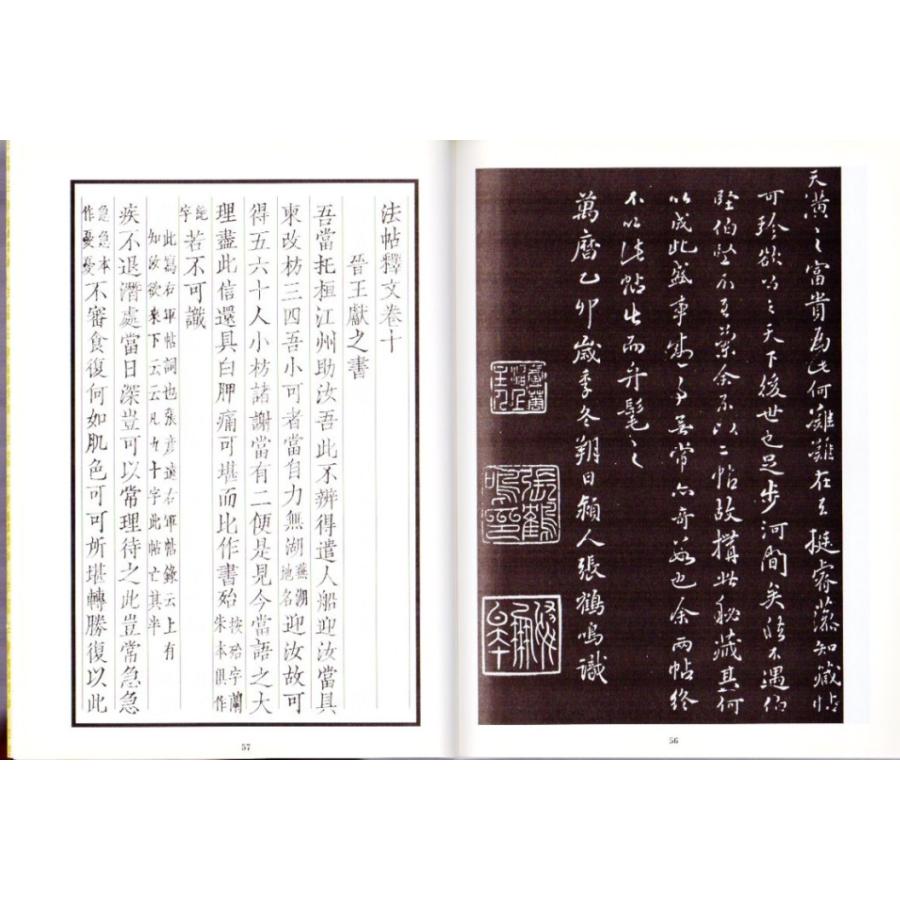 天潢之富貴為此何難難在其挺睿藻知藏帖
可珍欲公之天下後世也足步河間矣惜不遇伯
堅伯堅不有蘭余不以二帖故搆此秘藏其何
以成此盛事然事無常亦奇數也余兩帖終
不以法帖出而弁髦之
萬曆乙卯歲季冬朔日潁人張鶴鳴識
張鶴鳴印
56
法帖釋文卷十
晉王獻之書
吾當托桓江州助汝吾此不辨得遣人船迎汝當具
東改枋三四吾小可者當自力無湖蕪湖地名迎汝故可
得五六十人小枋諸謝當有二便是見今當語之大
理盡此信還具白胛痛可堪而比作書殆按殆字蘭朱本俱作
能字若不可識
此寫右軍帖詞也張彥遠右軍帖錄云上有
知汝欲來下云云凡九十字此帖亡其半
疾不退潛處當日深豈可以常理待之此豈常急急
急急本作憂憂不審食復何如肌色可可所堪轉勝復以此
57